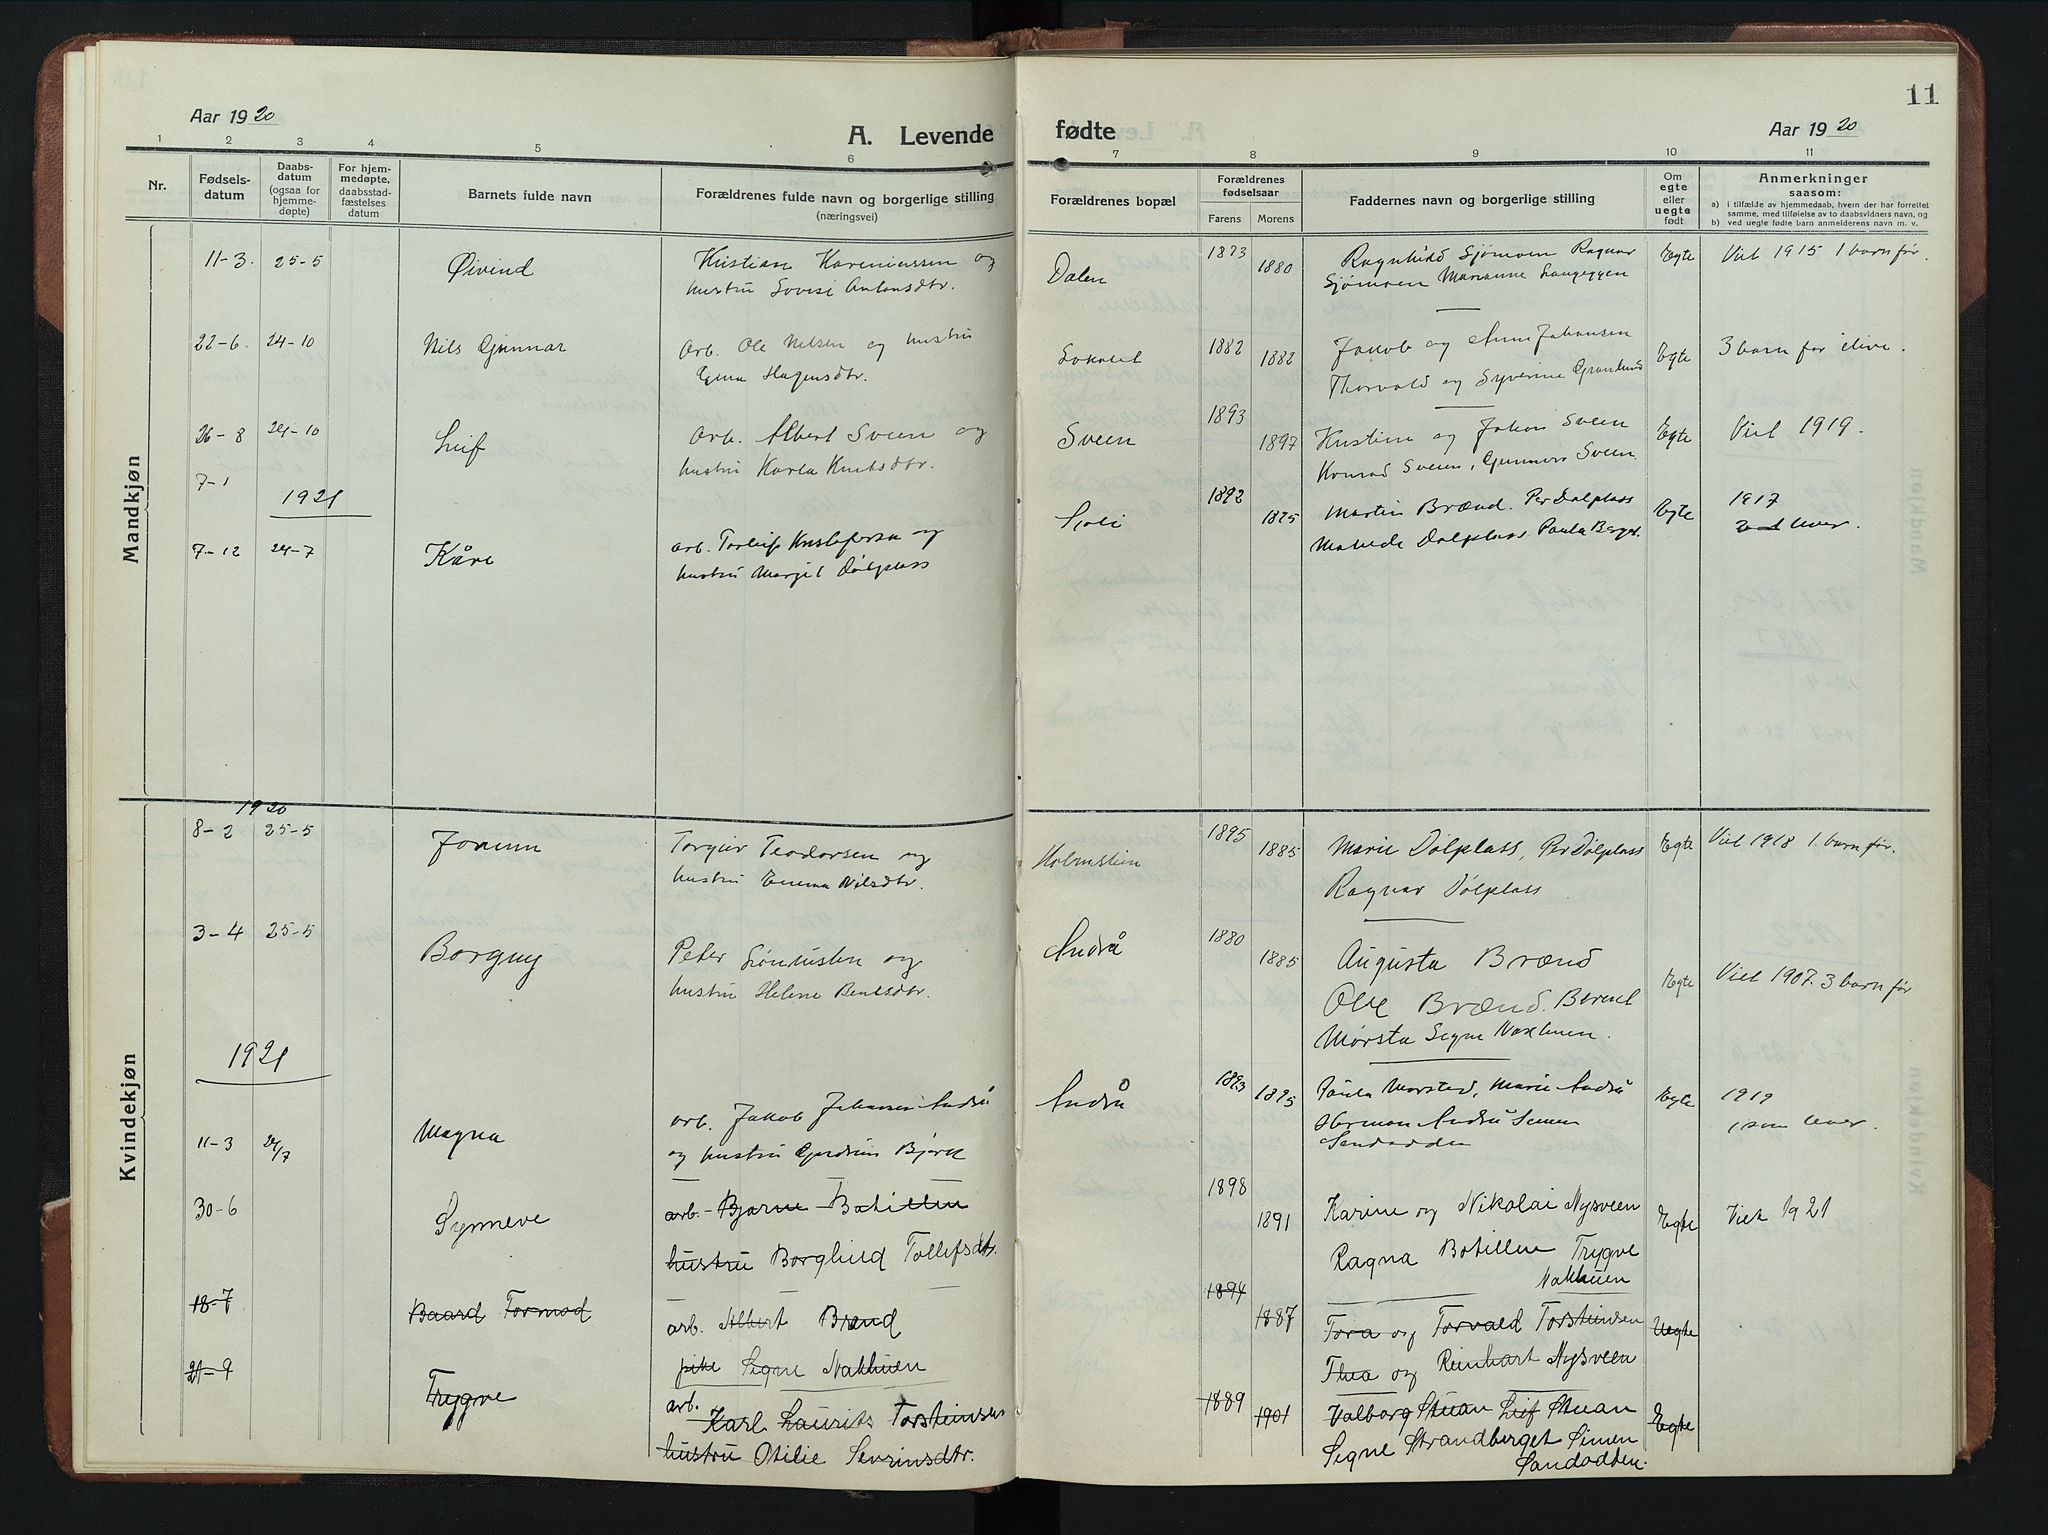 Aar 1920
A. Levende
1 2 3 4 5 6
Nr.
Fødsels-
datum
Daabs-
datum
(ogsaa for
hjemme-
døpte)
For hjem-
medøpte,
daabsstad-
fæstelses
datum
Barnets fulde navn
Forældrenes fulde navn og borgerlige stilling
(næringsvei)
Mandkjøn
11-3. 25-5 Øivind
og
hustru Lovise Antonsdtr.
22-6. 24-10 Nils Gunnar Arb. Ole Nilsen og hustru
26-8 24-10 Leif Arb. Albert Sveen og
hustru Karla
7-1
1921
7-12 24-7 Kåre arb. og
hustru Margit Dølplass
1920
Kvindekjøn
8-2 25-5 Jorunn Teodorsen og
hustru Emma Nilsdtr.
3-4 25-5 Borgny Peter og
hustru Helene Bentsdtr.
1921
11-3 24/7 Magna arb. Jakob Johansen Andrå
og hustru Gudrun Bjørk
30-6 Synneve arb. Bjarne Botillen
hustru Borghild Tollefsdtr.
18-7 Baard Tormod arb. Albert Brænd
pike Signe Nakhuen
21-9 Trygve arb.
Karl Laurits Torsteinsen
hustru Otilie Sevrinsdtr.
11
fødte
Aar 1920
7 8 9 10 11
Forældrenes bopæl
Forældrenes
fødselsaar
Farens Morens
Faddernes navn og borgerlige stilling
Om
egte
eller
uegte
født
Anmerkninger
saasom:
a) i tilfælde av hjemmedaab, hvem der har forrettet
samme, med tilføielse av to daabsvidners navn, og
b) ved uegte fødte barn anmelderens navn m. v.
Dalen 1873 1880 Ragnhild Sjømoen Ragnar Egte Viet 1915 1 barn før.
Sjømoen Marianne Haugeggen
1882 1882 Jakob og Anne Johansen Egte 3 barn før ilive.
Thorvald og Syverine Grønlund
Sveen 1893 1897 Kristine og Johan Sveen Egte Viet 1919.
Konrad Sveen, Gunnar Sveen.
1892 1895 Martin Brænd. Per Dølplass Egte 1917
Dølplass Paula lever.
Holmstien 1895 1885 Marie Dølplass, Per Dølplass Egte Viet 1918 1. barn før.
Ragnar Dølplass
Andrå 1880 1885 Augusta Brænd Egte Viet 1907. 3 barn før
Ole Brænd. Berent
Mørsta Signe
Andrå 1893 1895 Paula Morsted, Marie Andrå Egte 1919
Herman Andrå Simen lever.
Sandodden
1898 1891 Karine og Nikolai Nysveen Egte Viet 1921
Ragna Botillen Trygve
Nakhuen
1894 1887 Tora og Torvald Torsteinsen Uegte
Thea og Reinhart Nysveen
1889 1901 Valborg Stuan Leif Stuan Egte
Signe Strandberget Simen
Sandodden.